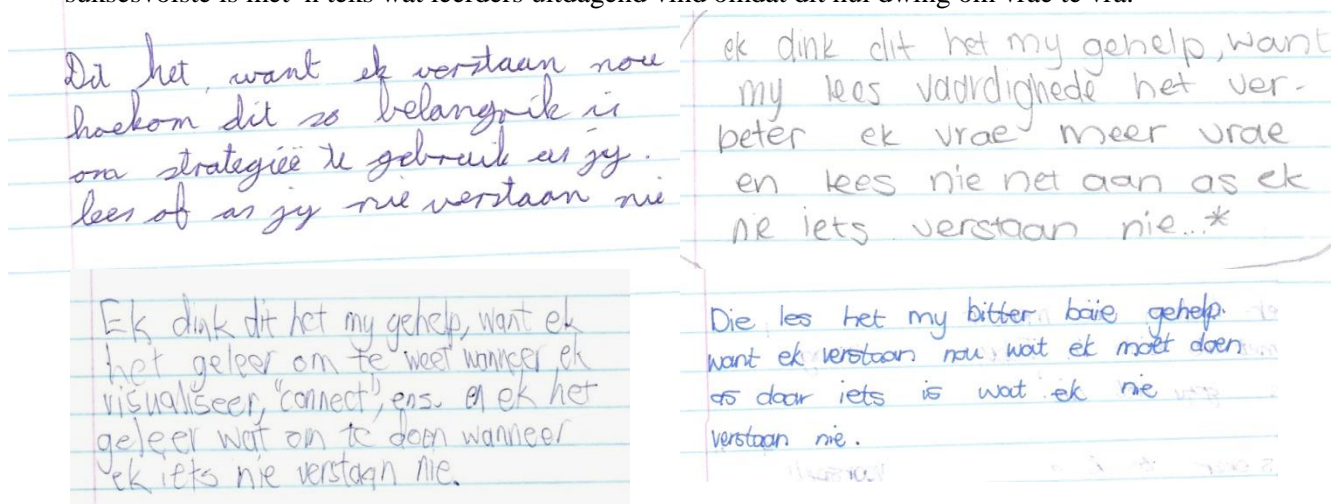 suksesvolste is met 'n teks wat leerders uitdagend vind omdat dit hul dwing om vrae te vra.
Dit het, want ek verstaan nou
hoekom dit so belangrik is
om strategieë te gebruik as jy
lees of as jy nie verstaan nie.
ek dink dit het my gehelp, want
my lees vaardighede het ver-
beter ek vrae meer vrae
en lees nie net aan as ek
nie iets verstaan nie...*
Ek dink dit het my gehelp, want ek
het geleer om te weet wanneer ek
visualiseer, "connect", ens. en ek het
geleer wat om te doen wanneer
ek iets nie verstaan nie.
Die les het my bitter baie gehelp.
want ek verstaan nou wat ek moet doen
as daar iets is wat ek nie
verstaan nie.